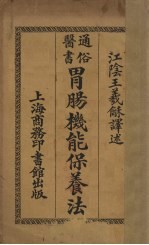 江陰王羲龢譯述
通俗醫書
胃腸機能保養法
上海商務印書館出版